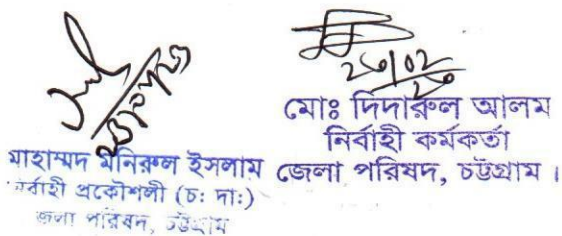 মাহাম্মদ মনিরুল ইসলাম
নির্বাহী প্রকৌশলী (চ: দা:)
জেলা পরিষদ, চট্টগ্রাম
মোঃ দিদারুল আলম
নির্বাহী কর্মকর্তা
জেলা পরিষদ, চট্টগ্রাম।